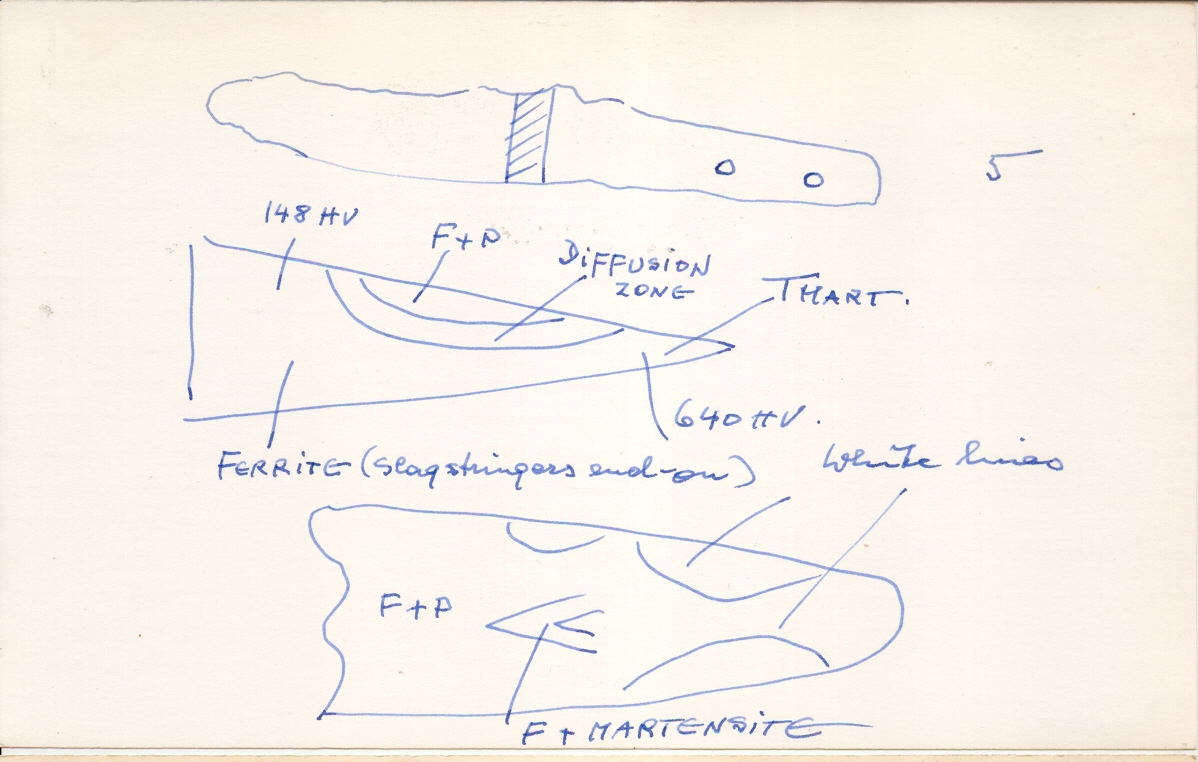 5
148 HV
F+P
DIFFUSION
ZONE
TMART.
640 HV.
FERRITE (slagstringers end-on)
White lines
F+P
F + MARTENSITE